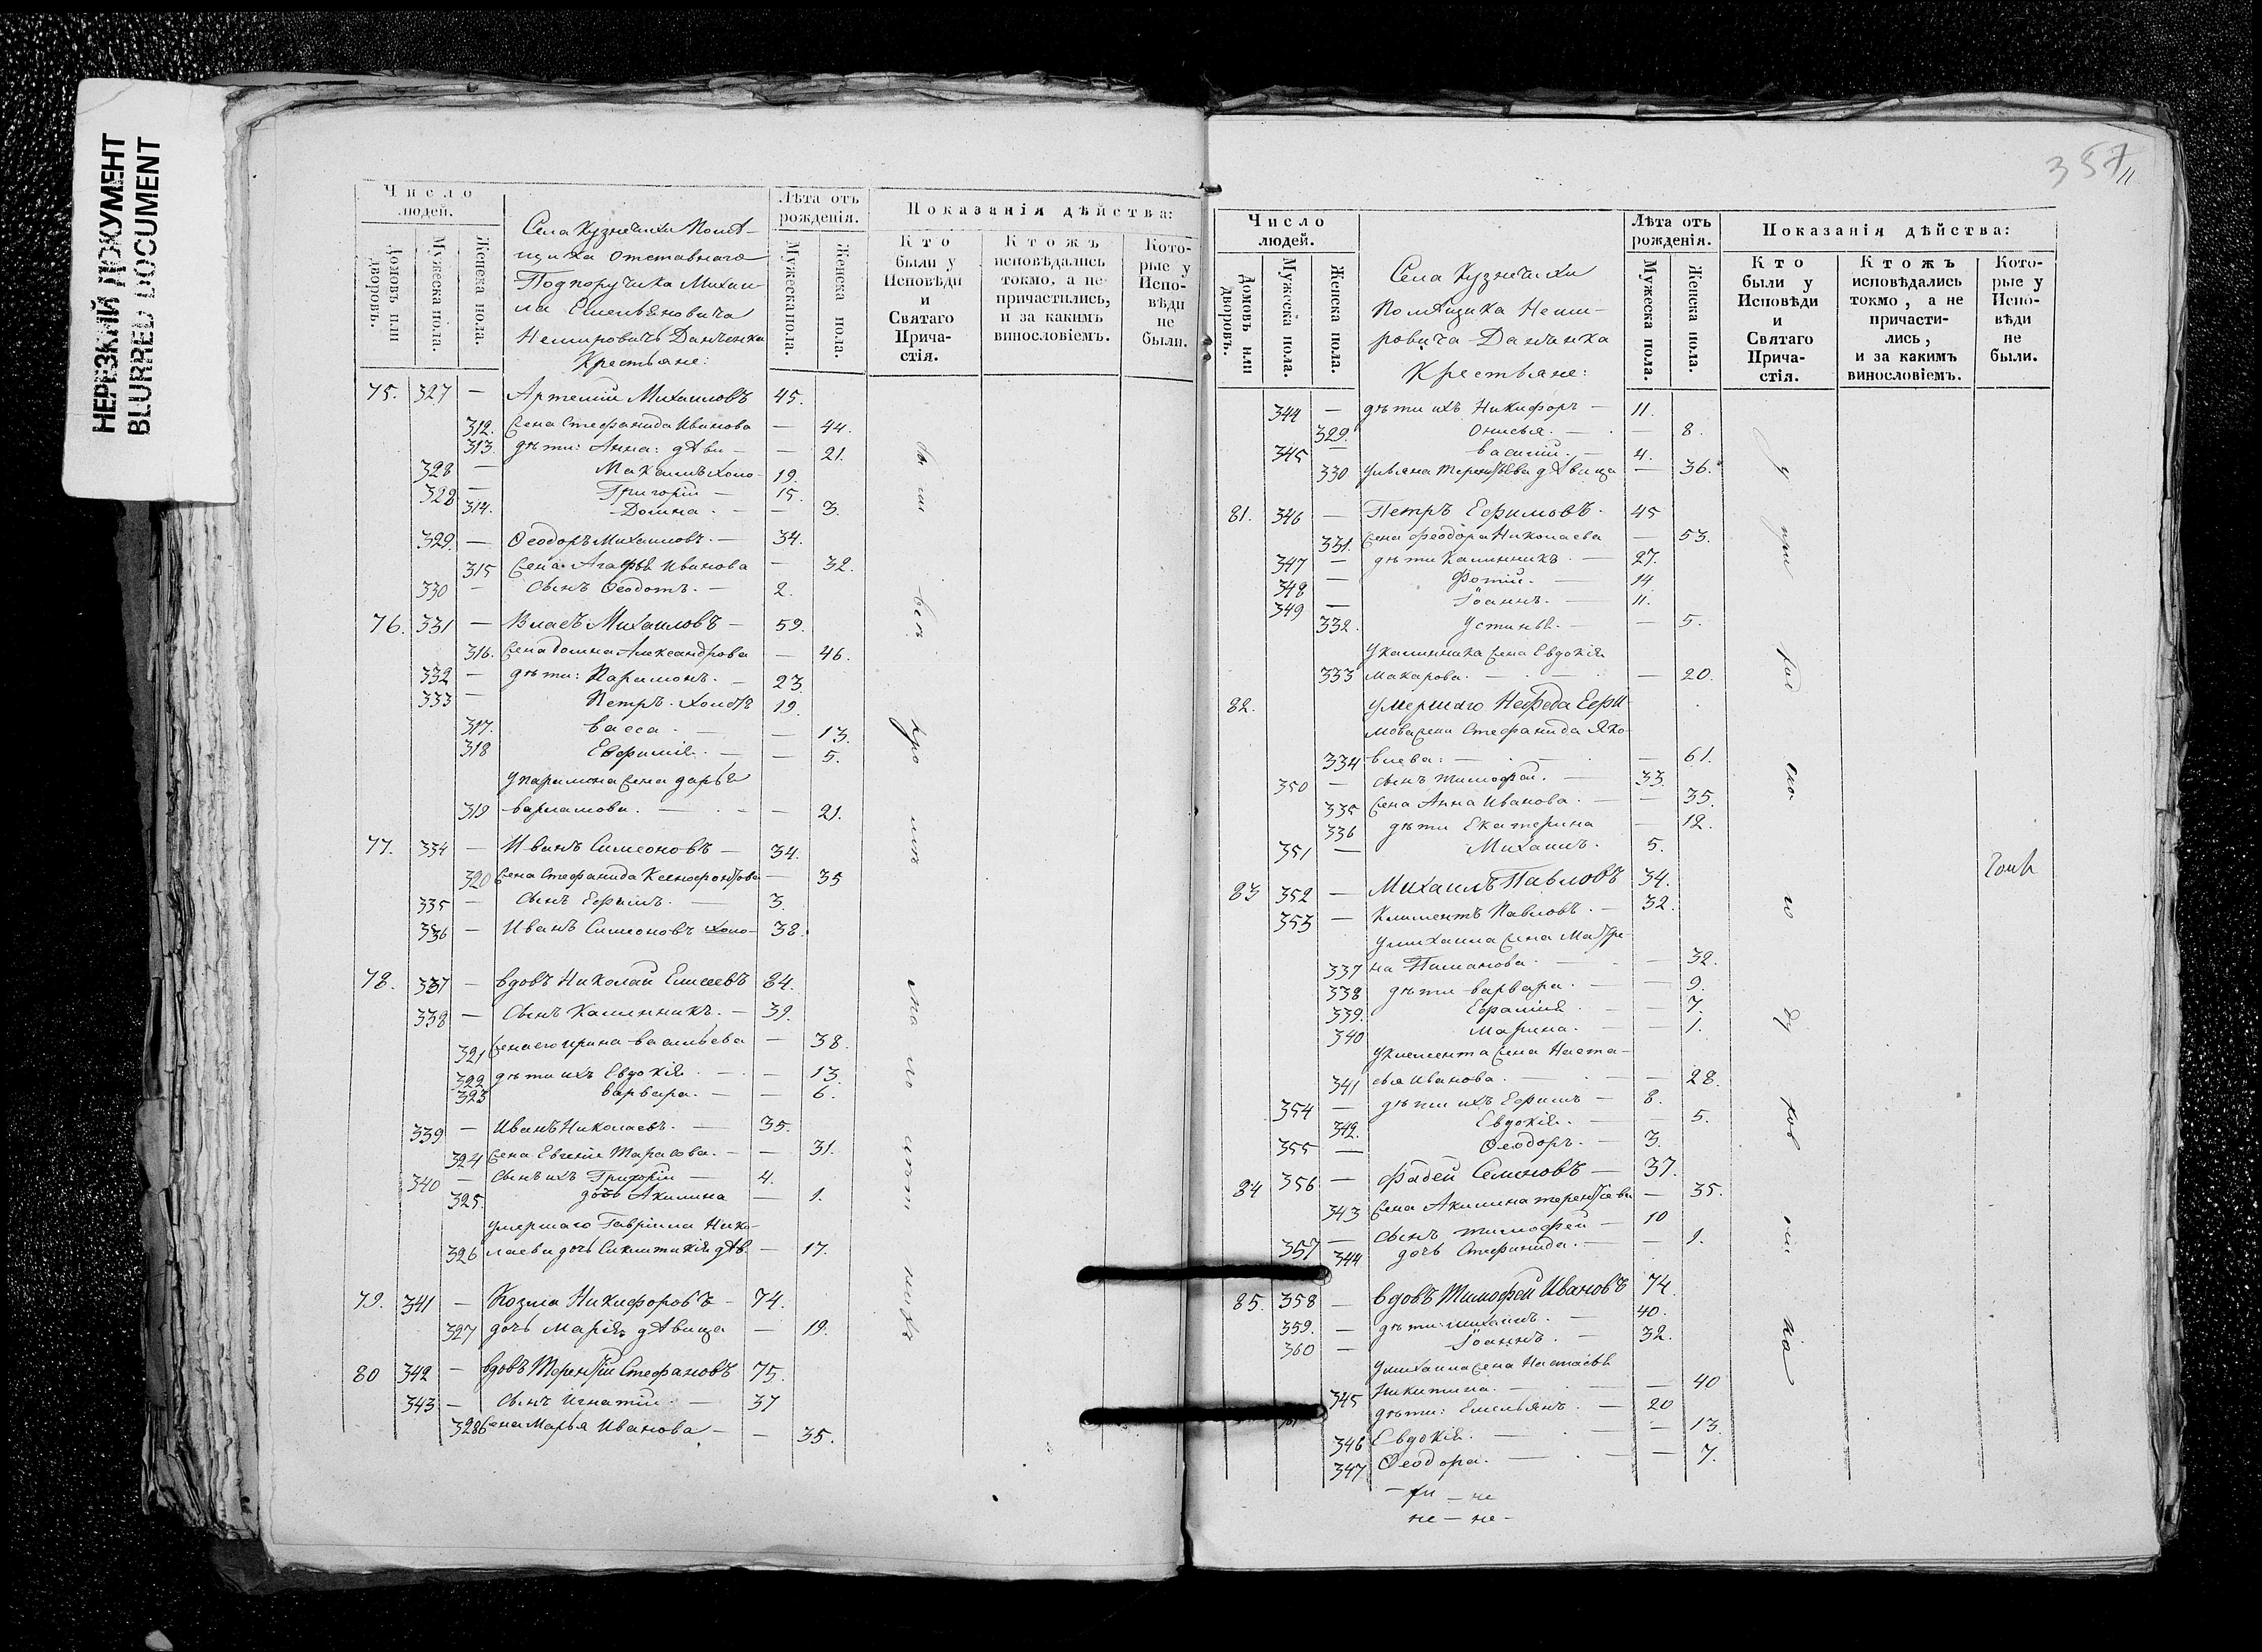 НЕРЕЗКИЙ ДОКУМЕНТ
BLURRED DOCUMENT
Число людей.
Домовъ или дворовъ.
Мужеска пола.
Женска пола.
Села Кузнечихи Помѣ-
щика отставнаго
Подпоручика Михаи-
ла Емельяновича
Немировичъ Данченка
Крестьяне:
Лѣта отъ рожденія.
Мужеска пола.
Женска пола.
Показанія дѣйства:
Кто были у Исповѣди и Святаго Прича-стія.
Ктожъ исповѣдались токмо, а не причастились, и за какимъ винословіемъ.
Кото-рые у Испо-вѣди не были.
75. 327 — Артемій Михаиловъ 45.
312. Жена Стефанида Иванова — 44.
313. дѣти: Анна: дѣви — — 21.
328 — Михаилъ холо- 19.
328 — Григорій — 15.
314. Домна. — — 3.
329. — Ѳеодоръ Михаиловъ. — 34.
315 Жена Агафья Иванова — 32.
330 — Сынъ Ѳеодотъ. — 2.
76. 331 — Власъ Михаиловъ — 59.
316. Жена Домна Александрова — 46.
332 — дѣти: Парамонъ. — 23.
333 — Петръ. холостъ 19.
317. Васса. — — 13.
318 Евфимія. — — 5.
У парамона Жена дарья
319 варламова. — — 21.
77. 334 — Иванъ Симеоновъ — 34.
320 Жена Стефанида Ксенофонтова — 35
335 — Сынъ Ефимъ. — 3.
336 — Иванъ Симеоновъ холо- 38.
78. 337 — вдовъ Николай Елисеевъ 84.
338 — Сынъ Калинникъ. — 39.
321 Жена его ирина васильева — 38.
322 дѣти ихъ Евдокія. — — 13.
323 варвара. — — 6.
339 — Иванъ Николаевъ. — 35.
324 Жена Евгенія Тарасова. — — 31.
340 — Сынъ ихъ Григорій — 4.
325. дочь Акилина — 1.
умершаго Гавріила Нико-
326 лаева дочь Синклитикія дѣв. — 17.
79. 341 — Козма Никифоровъ — 74.
327 дочь Марія дѣвица — 19.
80 342 — вдовъ Терентій Стефановъ 75.
343 — Сынъ игнатій. — 37
328 Жена Марья Иванова — — 35.
357
11
Число людей.
Домовъ или дворовъ.
Мужеска пола.
Женска пола.
Села Кузнечихи
Помѣщика Неми-
ровича Данченка
Крестьяне:
Лѣта отъ рожденія.
Мужеска пола.
Женска пола.
Показанія дѣйства:
Кто были у Исповѣди и Святаго Прича-стія.
Ктожъ исповѣдались токмо, а не причасти-лись, и за какимъ винословіемъ.
Кото-рые у Испо-вѣди не были.
344 — дѣти ихъ Никифоръ — 11.
329. Онисья. — — 8.
345 — василій. — 4.
330 Ульяна Терентьева дѣвица — 36.
81. 346 — Петръ Ефимовъ. 45
331. Жена феодора Николаева — 53.
347 — дѣти Калинникъ. — 27.
348 — Фотій. — 14
349 — Іоаннъ. — 11.
332. Устинья. — — 5.
У калинника Жена Евдокія
333 Макарова. — — 20.
82. умершаго Нефеда Ефи-
мова Жена Стефанида Яко-
334 влева: — — 61.
350 — Сынъ тимофей. — 33.
335 Жена Анна Иванова. — — 35.
336 дѣти Екатерина — 12.
351 — Михаилъ. 5.
83 352 — Михаилъ Павловъ 34.
353 — Климентъ Павловъ. — 32.
У михаила Жена Матре-
337 на — — 32.
338 дѣти варвара. — — 9.
339. — 7.
340 Марина. — — 1.
У климента Жена Наста-
341 сья Иванова. — — 28.
354 — дѣти ихъ Ефимъ — 8.
342. Евдокія. — — 5.
355 — Ѳеодоръ. — 3.
84 356 — Фадей Семеновъ — 37.
343 Жена Акилина терентьева — 35.
357 — Сынъ тимофей — 10
344 дочь Стефанида. — — 1.
85. 358 — вдовъ Тимофей Ивановъ 74.
359. — дѣти михаилъ. — 40.
360 — Іоаннъ. — 32.
У михаила Жена Настасья
345 Никитина. — — 40
дѣти: Емельянъ. — 20
346 Евдокія. — — 13.
347 Ѳеодора. — — 7.